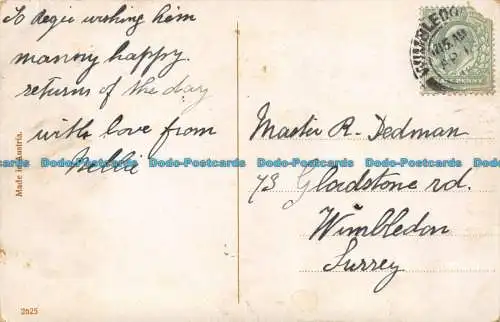 To Regie wishing him
manny happy
returns of the day
with love from
Nellie
Master R. Dedman
73 Gladstone rd.
Wimbledon
Surrey
Made in Austria.
2625
WIMBLEDON
12.15 PM
PENNY
Dodo-Postcards Dodo-Postcards Dodo-Postcards Dodo-Postcards Dodo-Postcards